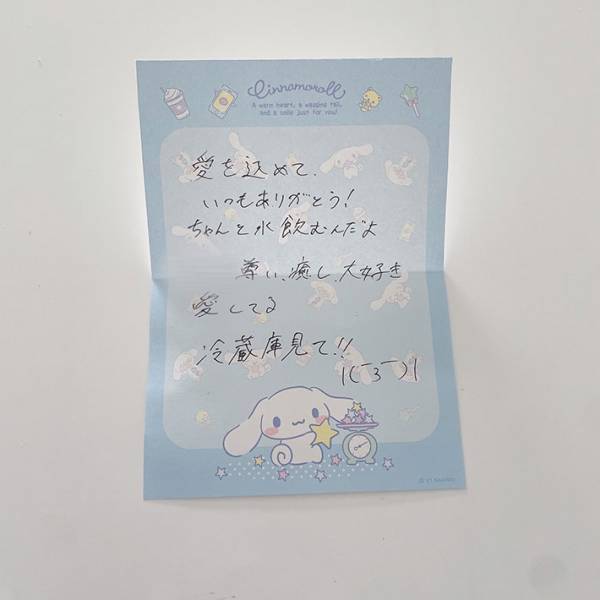 Cinnamoroll
A warm heart, a wagging tail,
and a smile just for you!
愛を込めて、
いつもありがとう！
ちゃんと水飲むんだよ
尊い、癒し、大好き
愛してる
冷蔵庫見て!!
|(¯3¯)|